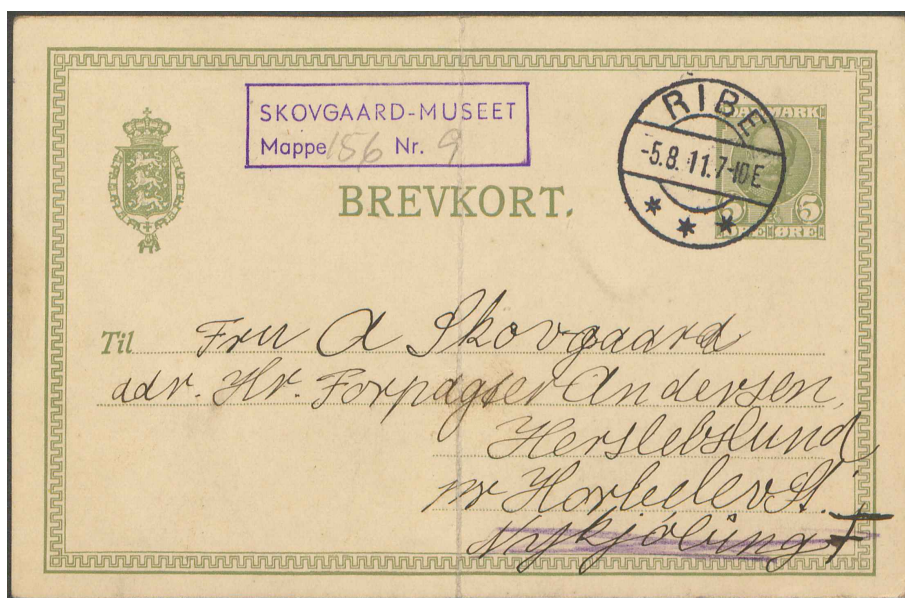 SKOVGAARD-MUSEET
Mappe 156 Nr. 9
RIBE
-5.8.11.7-10E
DANMARK
5 5
ØRE ØRE
BREVKORT.
Til Fru A Skovgaard
adr. Hr. Forpagter Andersen,
Herslebslund
pr Horbelev St.
Nykjøbing F